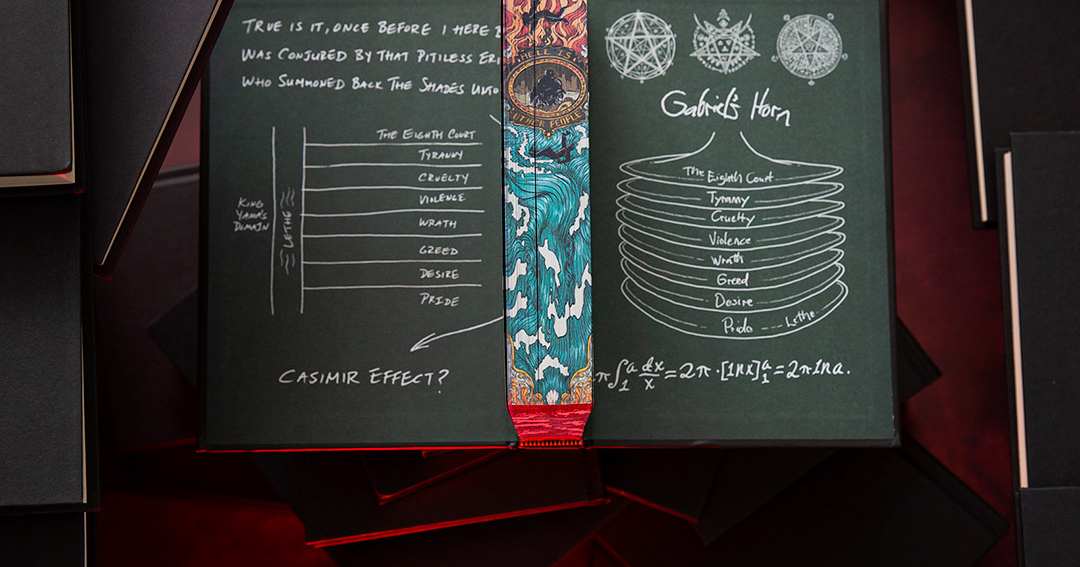 TRUE IS IT, ONCE BEFORE I HERE
WAS CONJURED BY THAT PITILESS
WHO SUMMONED BACK THE SHADES UNTO
THE EIGHTH COURT
TYRANNY
CRUELTY
VIOLENCE
WRATH
GREED
DESIRE
PRIDE
KING
YAMA'S
DOMAIN
LETHE
CASIMIR EFFECT?
HELL IS
OTHER PEOPLE
Gabriel's Horn
The Eighth Court
Tyranny
Cruelty
Violence
Wrath
Greed
Desire
Pride
Lethe
π∫₁ᵃ dx/x = 2π · [lnx]₁ᵃ = 2π lna.